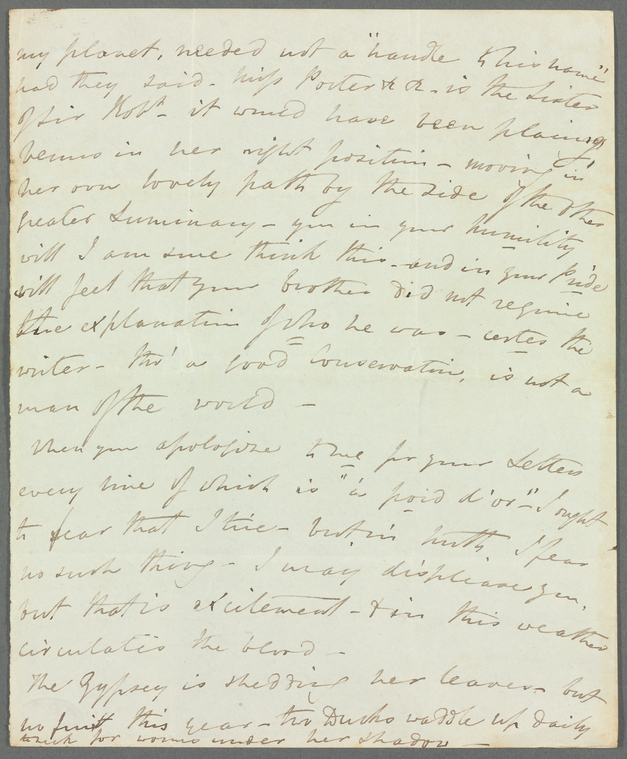 my planet, needed not a "handle to his name"
had they said - Miss Porter &c &c - is the Sister
of Sir Robt - it would have been placing
Venus in her right position - moving in
her own lovely path by the side of the other
greater Luminary - you in your humility
will I am sure think this - and in your Pride
will feel that your brother did not require
the explanation of who he was - certes the
writer - tho' a good Conservative, is not a
man of the world -
When you apologize to me for your Letters
every line of which is "à poid d'or" - I ought
to fear that I tire - but in truth I fear
no such thing - I may displease you,
but that is excitement - & in this weather
circulates the blood -
The Gypsey is shedding her leaves - but
no fruit this year - two Ducks waddle up daily
to seek for worms under her shadow -